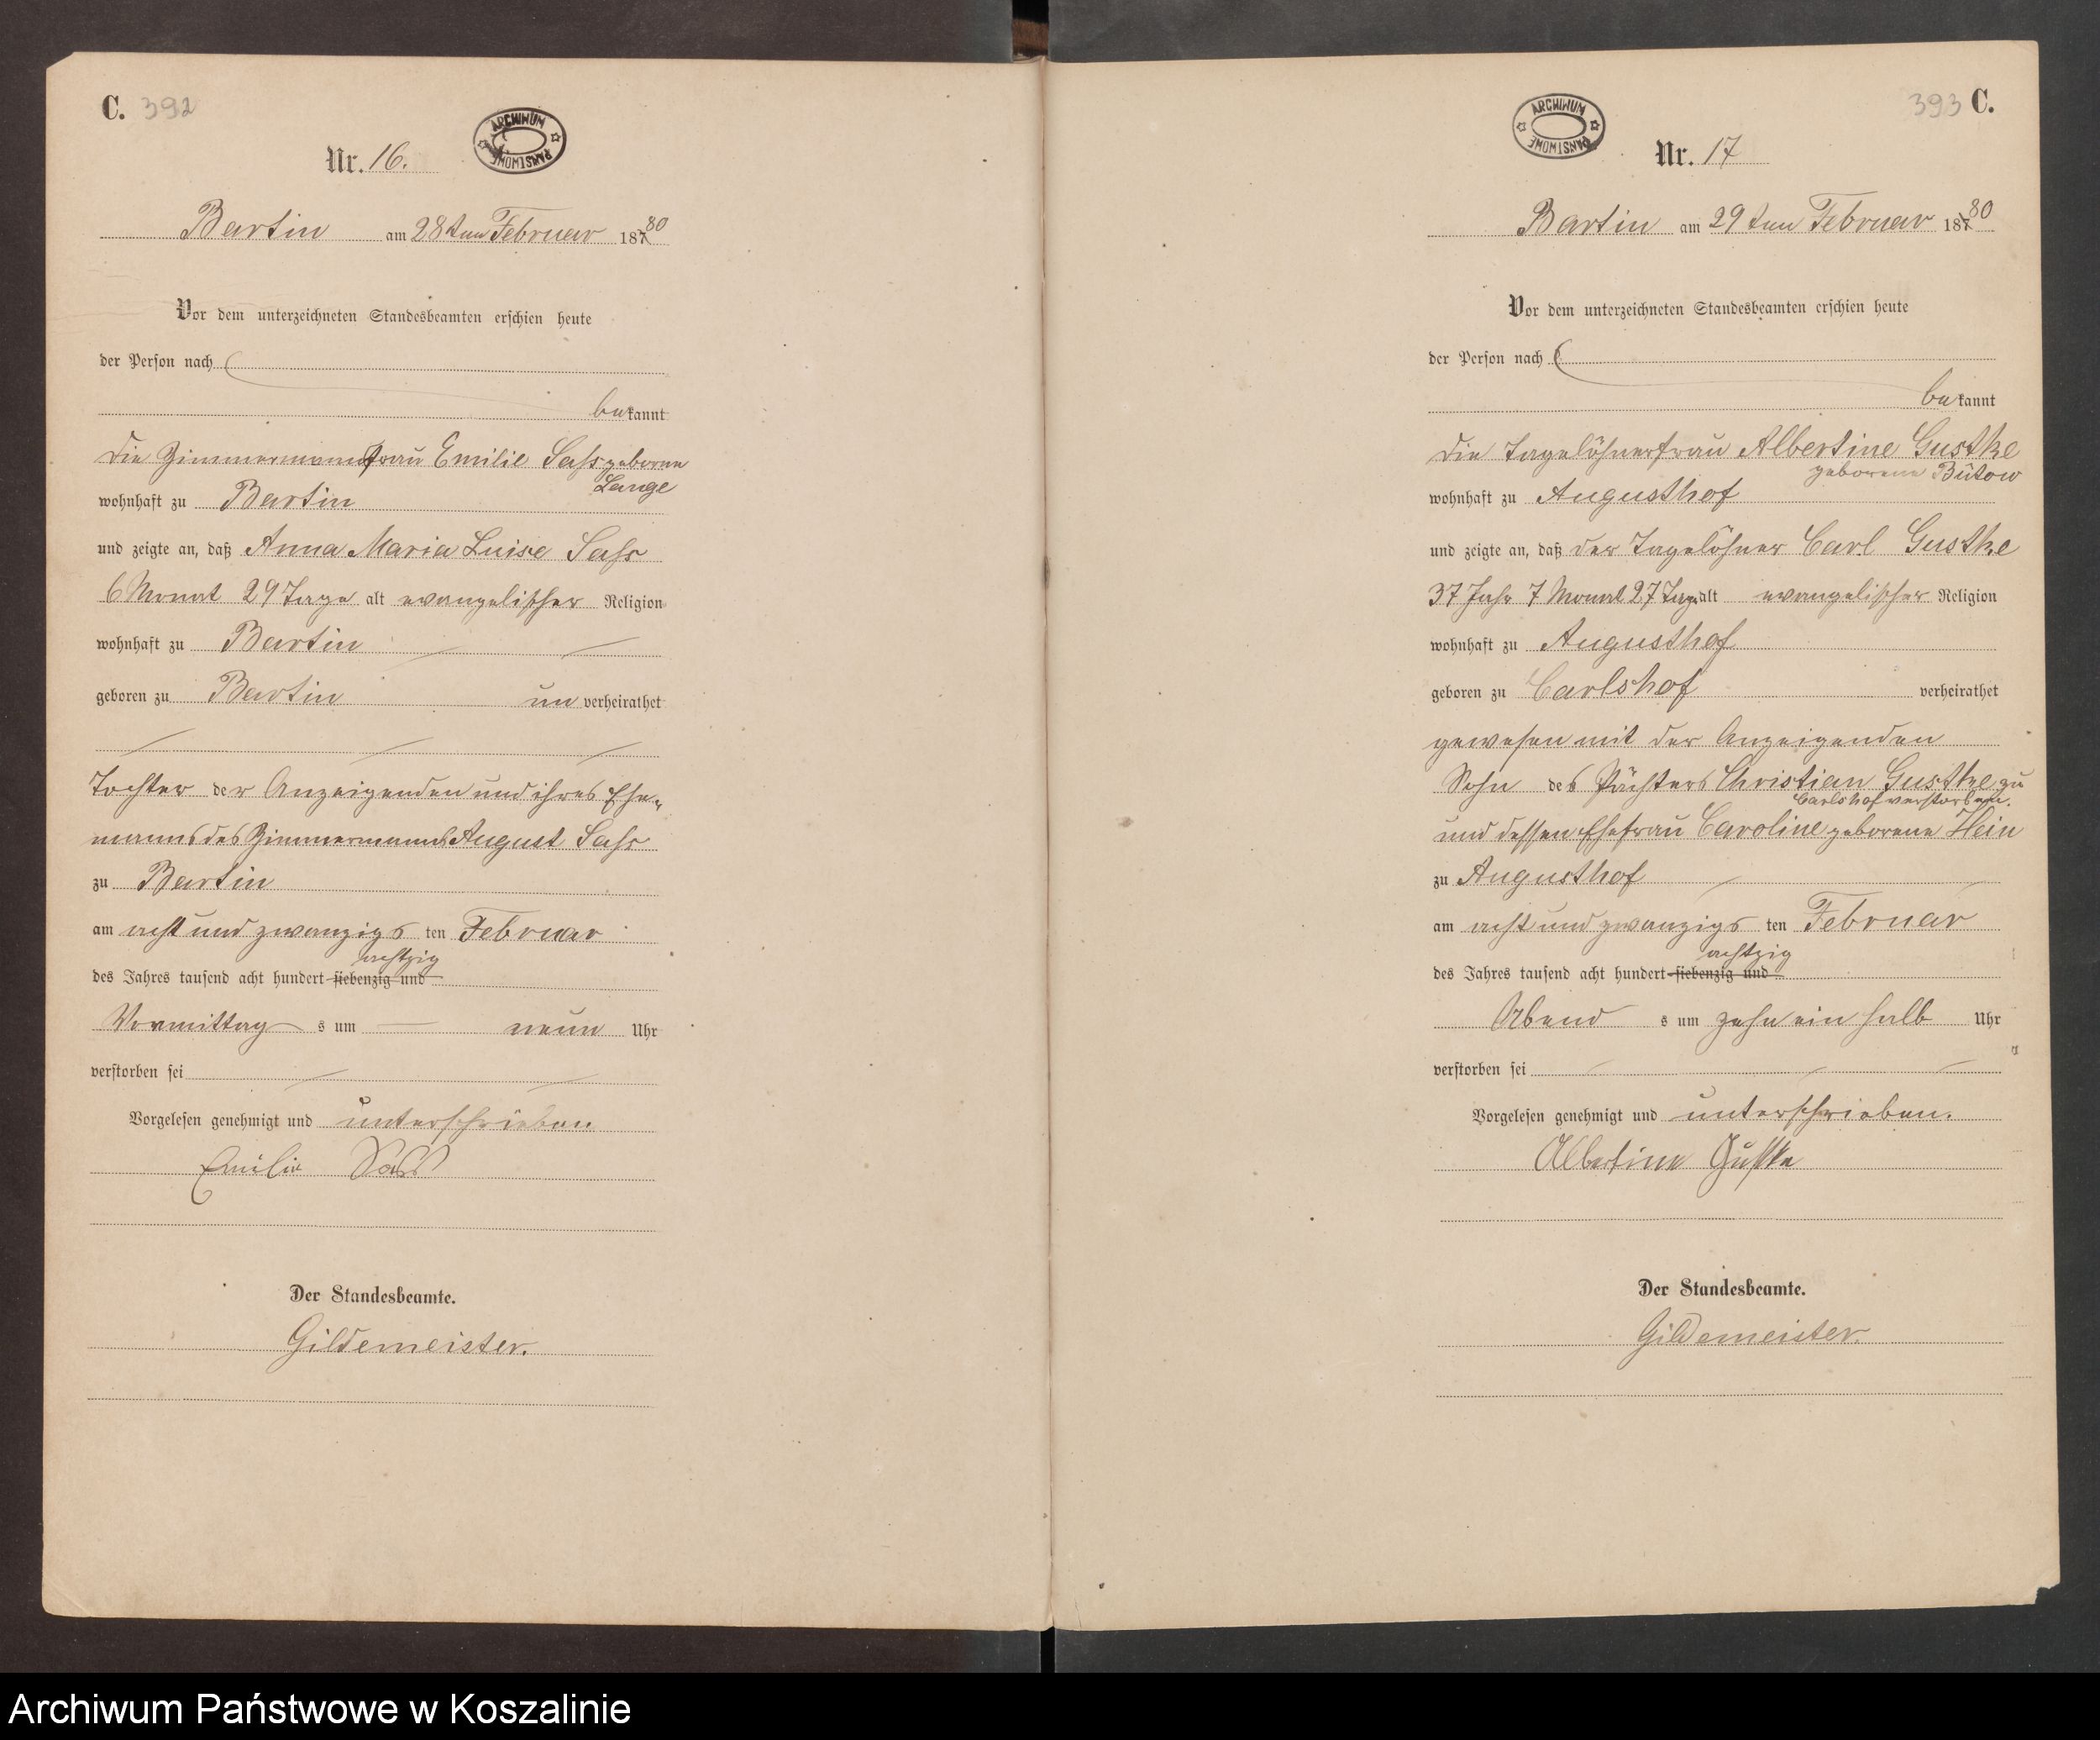 C. 392
ARCHIWUM PAŃSTWOWE
Nr. 16.
Bartin am 28ten Februar 18780
Vor dem unterzeichneten Standesbeamten erschien heute
der Person nach
bekannt
die Zimmermannsfrau Emilie Sass geborene
Lange
wohnhaft zu Bartin
und zeigte an, daß Anna Maria Luise Sass
6 Monat 29 Tage alt evangelischer Religion
wohnhaft zu Bartin
geboren zu Bartin un verheirathet
Tochter der Anzeigenden und ihres Ehe-
manns des Zimmermanns August Sass
zu Bartin
am acht und zwanzigs ten Februar
achtzig
des Jahres tausend acht hundert siebenzig und
Vormittag s um neun Uhr
verstorben sei
Vorgelesen genehmigt und unterschrieben
Emilie Sass
Der Standesbeamte.
Gildemeister.
393 C.
ARCHIWUM PAŃSTWOWE
Nr. 17
Bartin am 29ten Februar 18780
Vor dem unterzeichneten Standesbeamten erschien heute
der Person nach
bekannt
die Tagelöhnerfrau Albertine Gustke
geborene Bütow
wohnhaft zu Augusthof
und zeigte an, daß der Tagelöhner Carl Gustke
37 Jahr 7 Monat 27 Tage alt evangelischer Religion
wohnhaft zu Augusthof
geboren zu Carlshof verheirathet
gewesen mit der Anzeigenden
Sohn des Pächters Christian Gustke zu
Carlshof verstorben.
und dessen Ehefrau Caroline geborene Hein
zu Augusthof
am acht und zwanzigs ten Februar
achtzig
des Jahres tausend acht hundert siebenzig und
Abend s um zehn ein halb Uhr
verstorben sei
Vorgelesen genehmigt und unterschrieben.
Albertine Gustke
Der Standesbeamte.
Gildemeister.
Archiwum Państwowe w Koszalinie